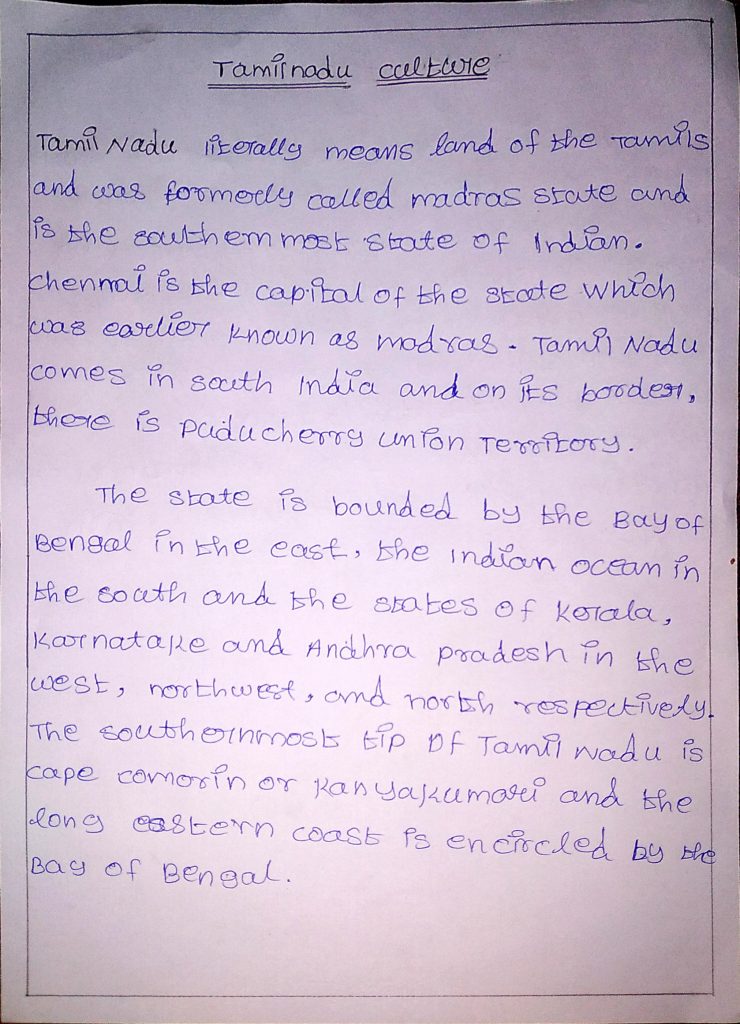 Tamilnadu culture
Tamil Nadu literally means land of the Tamils
and was formerly called madras state and
is the southern most state of Indian.
Chennai is the capital of the state which
was earlier known as madras. Tamil Nadu
comes in south India and on its border,
there is Puducherry union Territory.
The state is bounded by the Bay of
Bengal in the east, the Indian ocean in
the south and the states of Kerala,
Karnatake and Andhra pradesh in the
west, northwest, and north respectively.
The southernmost tip of Tamil nadu is
cape comorin or Kanyakumari and the
long eastern coast is encircled by the
Bay of Bengal.